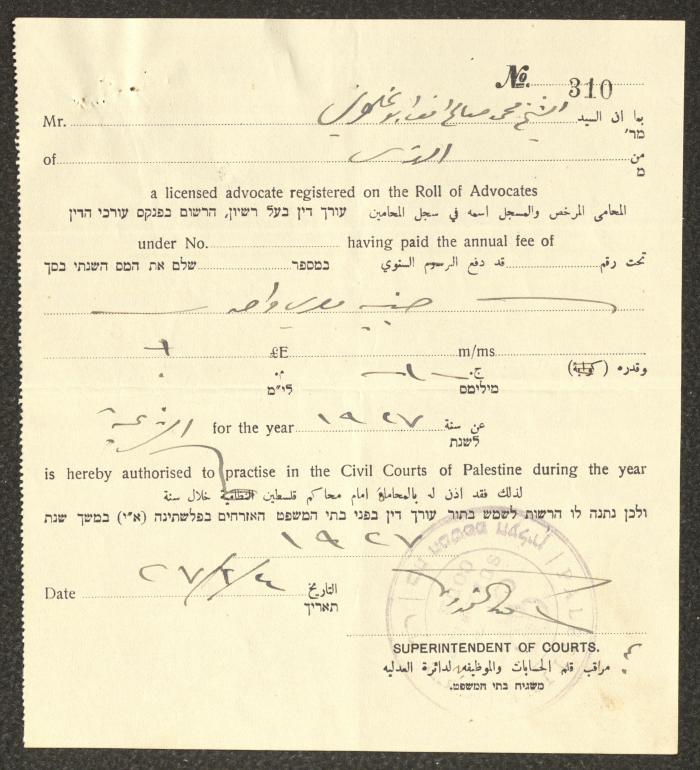 No. 310
Mr. الشيخ محمد صالح افندي بما ان السيد
מר'
of القدس من
מ
a licensed advocate registered on the Roll of Advocates
المحامى المرخص والمسجل اسمه في سجل المحامين עורך דין בעל רשיון, הרשום בפנקס עורכי הדין
under No. having paid the annual fee of
تحت رقم قد دفع الرسوم السنوي במספר שלם את המס השנתי בסך
جنيه مصري واحد
£E m/ms
وقدره ( ) ج. ١ م.
מיליםס לי"מ
الشرعية for the year ١٩٢٧ عن سنة
לשנת
is hereby authorised to practise in the Civil Courts of Palestine during the year
لذلك فقد اذن له بالمحاماة امام محاكم فلسطين النظامية خلال سنة
ולכן נתנה לו הרשות לשמש בתור עורך דין בפני בתי המשפט האזרחים בפלשתינה (א"י) במשך שנת
١٩٢٧
Date التاريخ
תאריך
SUPERINTENDENT OF COURTS.
مراقب قلم الحسابات والموظفين لدائرة العدليه
משגיח בתי המשפט.